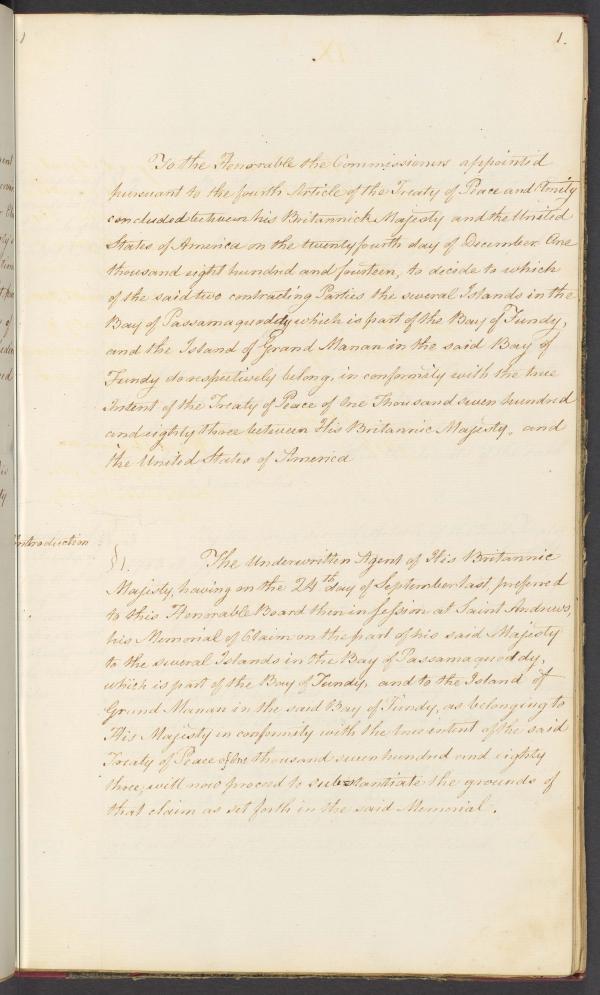 1.
To the Honorable the Commissioners appointed
pursuant to the fourth Article of the Treaty of Peace and Amity
concluded between his Britannick Majesty and the United
States of America on the twenty fourth day of December One
thousand eight hundred and fourteen, to decide to which
of the said two contracting Parties the several Islands in the
Bay of Passamaquoddy which is part of the Bay of Fundy,
and the Island of Grand Manan in the said Bay of
Fundy do respectively belong, in conformity with the true
Intent of the Treaty of Peace of One Thousand seven hundred
and eighty three between His Britannic Majesty, and
the United States of America
Introduction
§ 1. The Underwritten Agent of His Britannic
Majesty, having on the 24th day of September last, preferred
to this Honorable Board then in Session at Saint Andrews,
his Memorial of Claim on the part of his said Majesty
to the several Islands in the Bay of Passamaquoddy,
which is part of the Bay of Fundy, and to the Island of
Grand Manan in the said Bay of Fundy, as belonging to
His Majesty in conformity with the true intent of the said
Treaty of Peace of One thousand seven hundred and eighty
three, will now proceed to substantiate the grounds of
that claim as set forth in the said Memorial.